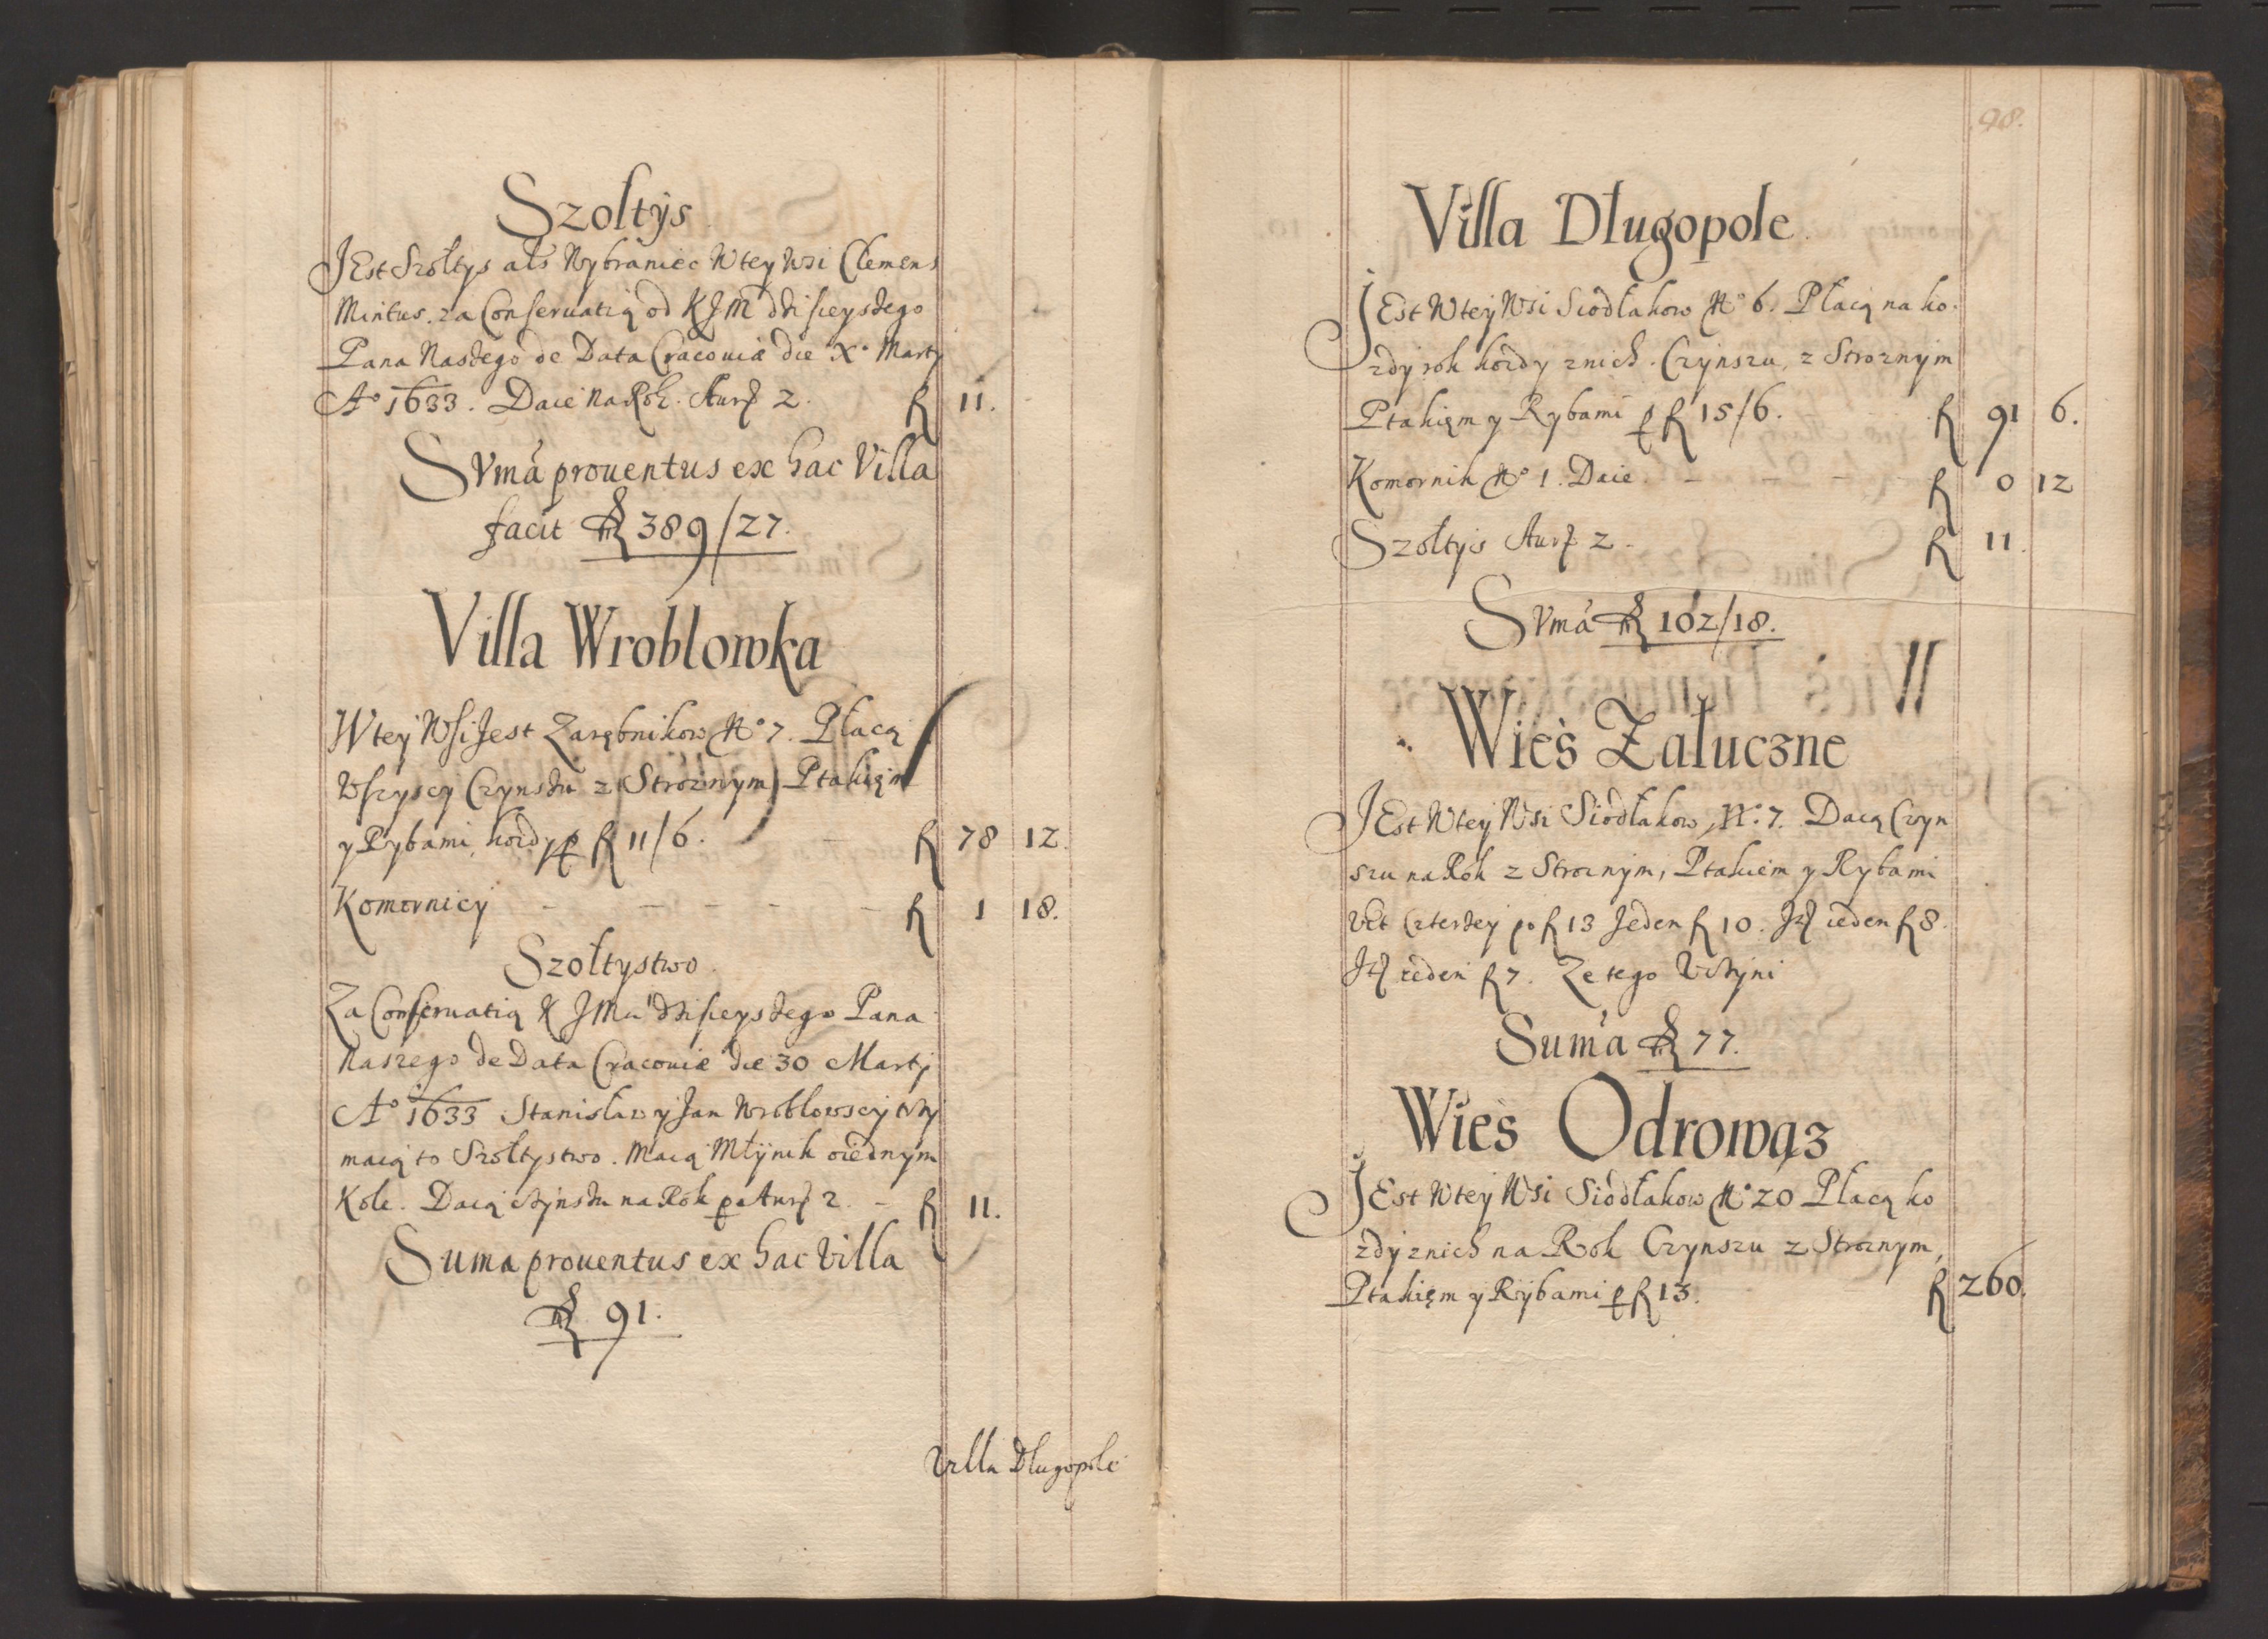 Szoltys
JEst Szołtys als Wybraniec W tey Wsi Clemens
Mintus. za Conseruatią od KJM dzisieyszego
Pana Naszego de Data Cracoviæ die X° Marty
A° 1633. Daie Na Rok. Aur 2. f 11.
SVma prouentus ex hac Villa
facit f 389/27.
Villa Wroblowka
W tey Wsi Jest Zarębnikow N° 7. Płacą
Wszyscy Czynszu z Stroznym Ptakięm
y Rybami, kozdy p f 11/6. f 78 12.
Komornicy – – – – – f 1 18.
Szołtystwo
Za Conseruatią K JMu dzisieyszego Pana
Naszego de Data Cracouiæ die 30 Martj
A° 1633 Stanisław y Jan Wroblowscy trzy
maią to Szołtystwo. Maią Młynik o iednym
Kole. Daią czynszu na Rok p Aur 2. – f 11.
Suma prouentus ex hac Villa
f 91.
Villa Długopole
98.
Villa Długopole.
JEst W tey Wsi Siodłakow N° 6. Płacą na ko.
zdy rok kozdy znich. Czynszu, z Stroznym
Ptakięm y Rybami p f 15/6. f 91 6.
Komornik N° 1. Daie – – – – f 0 12
Szołtys Aur 2. f 11.
SVma f 102/18.
Wieś Załuczne
JEst W tey Wsi Siodłakow, N° 7. Daią Czyn
szu na Rok z Stroznym, Ptakiem y Rybami
Vt Czterzey po f 13 Jeden f 10. It ieden f 8.
It ieden f 7. Ze tego Vczyni
Suma f 77.
Wieś Odrowąz
JEst W tey Wsi Siodłakow N° 20 Płacą ko
zdy znich na Rok Czynszu z Stroznym,
Ptakięm y Rybami p f 13. f 260.